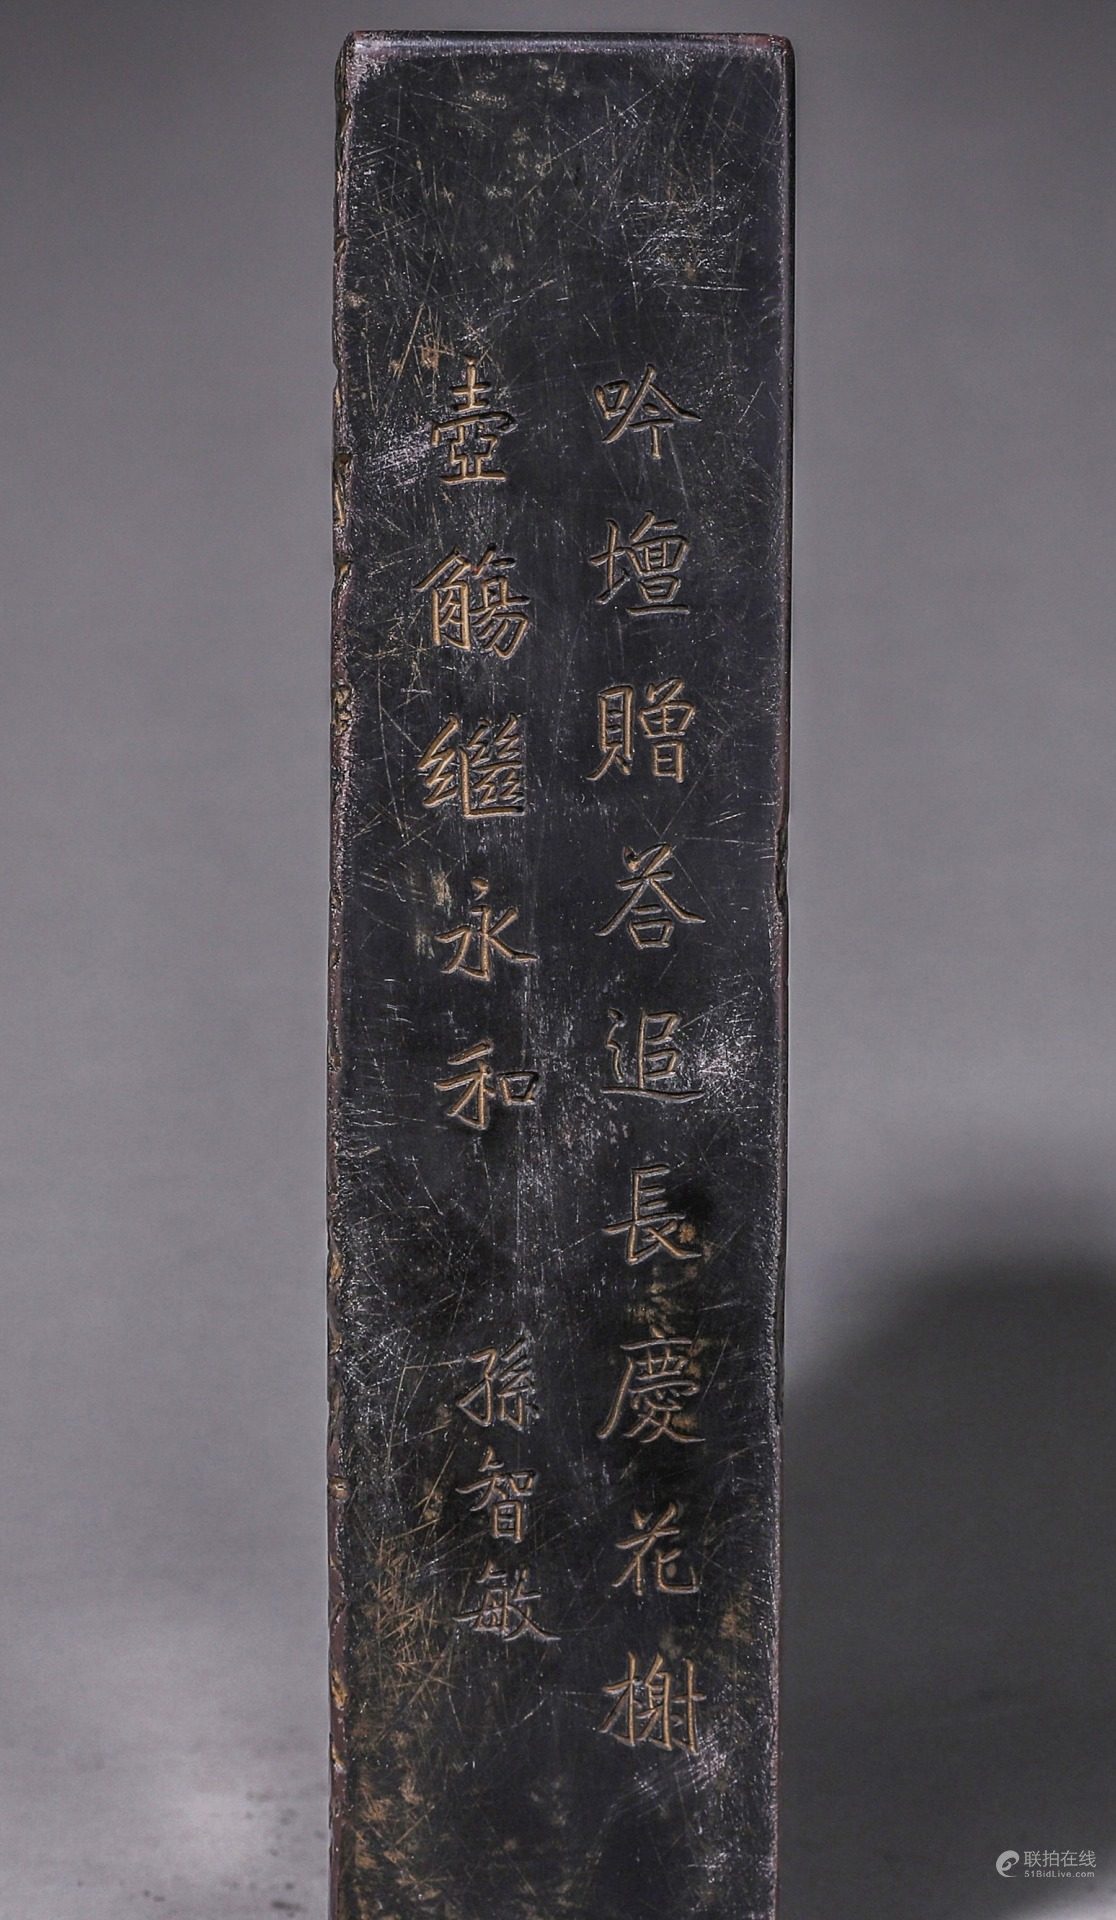 吟壇贈荅追長慶花榭
壺觴繼永和 孫智敏
联拍在线
51BidLive.com